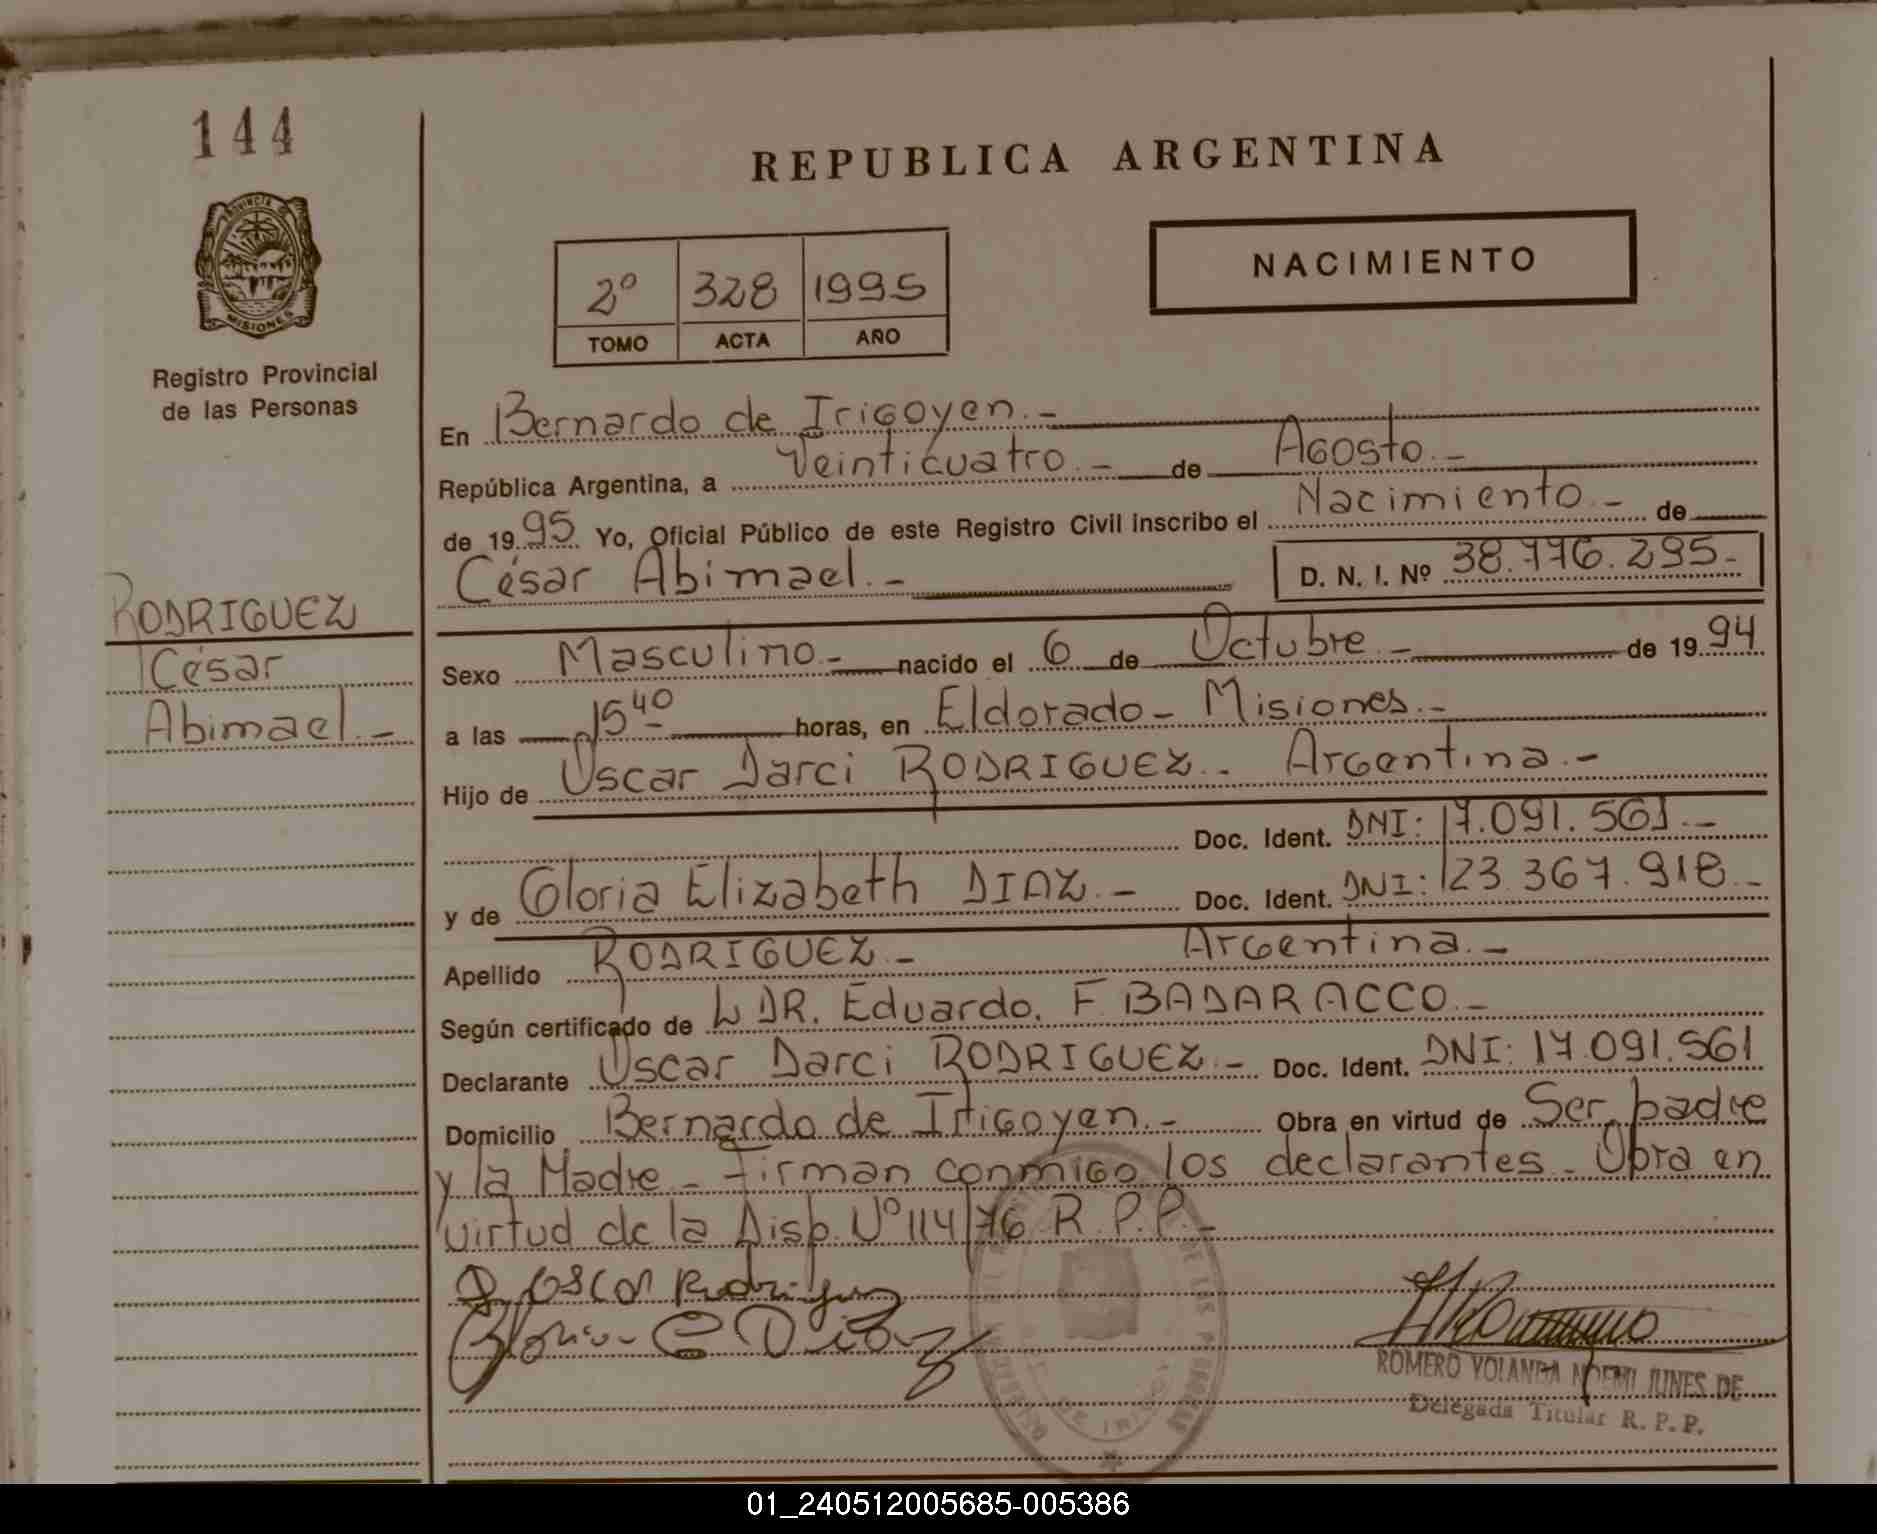 144
REPUBLICA ARGENTINA
PROVINCIA DE
MISIONES
Registro Provincial
de las Personas
2º 328 1995
TOMO ACTA AÑO
NACIMIENTO
En Bernardo de Irigoyen.-
República Argentina, a Veinticuatro.- de Agosto.-
de 1995 Yo, Oficial Público de este Registro Civil inscribo el Nacimiento.- de
César Abimael.- D. N. I. Nº 38.776.295-
RODRIGUEZ
César
Abimael.-
Sexo Masculino.- nacido el 6 de Octubre.- de 1994
a las 15 40 horas, en Eldorado- Misiones.-
Hijo de Oscar Darci RODRIGUEZ.- Argentina.-
Doc. Ident. DNI: 17.091.561.-
y de Gloria Elizabeth DIAZ.- Doc. Ident. DNI: 23.367.918.-
Apellido RODRIGUEZ.- Argentina.-
Según certificado de DR. Eduardo. F. BADARACCO.-
Declarante Oscar Darci RODRIGUEZ.- Doc. Ident. DNI: 17.091.561
Domicilio Bernardo de Irigoyen.- Obra en virtud de Ser padre
y la Madre.- Firman conmigo los declarantes.- Obra en
virtud de la Disp. Nº 114/76 R.P.P.-
Oscar Rodriguez
Gloria E Diaz
ROMERO YOLANDA NOEMI JUNES DE
Delegada Titular R. P. P.
01_240512005685-005386